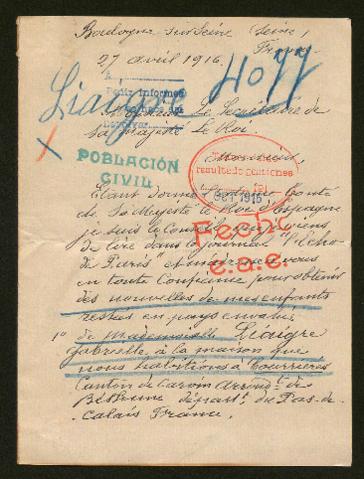 Boulogne sur Seine (Seine)
France
27 avril 1916.
Liaigre 4077
Pedir informes
Monsieur Le Secrétaire de
sa Majesté Le Roi.
POBLACIÓN
CIVIL
Monsieur,
resultado gestiones
Etant donné Bonté
de Sa Majesté le Roi d'Espagne
je suis le Conseil que je viens
de lire dans le journal "l'Echo
de Paris" et m'adresse à vous
en toute Confiance pour obtenir
des nouvelles de mes enfants
restés en pays envahi.
1° de Mademoiselle Liaigre
Gabrielle à la maison que
nous habitions à Courrières
Canton de Carvin Arrond.t de
Béthune départ.t du Pas-de-
Calais France.
1916
Fecha
c.a.e.